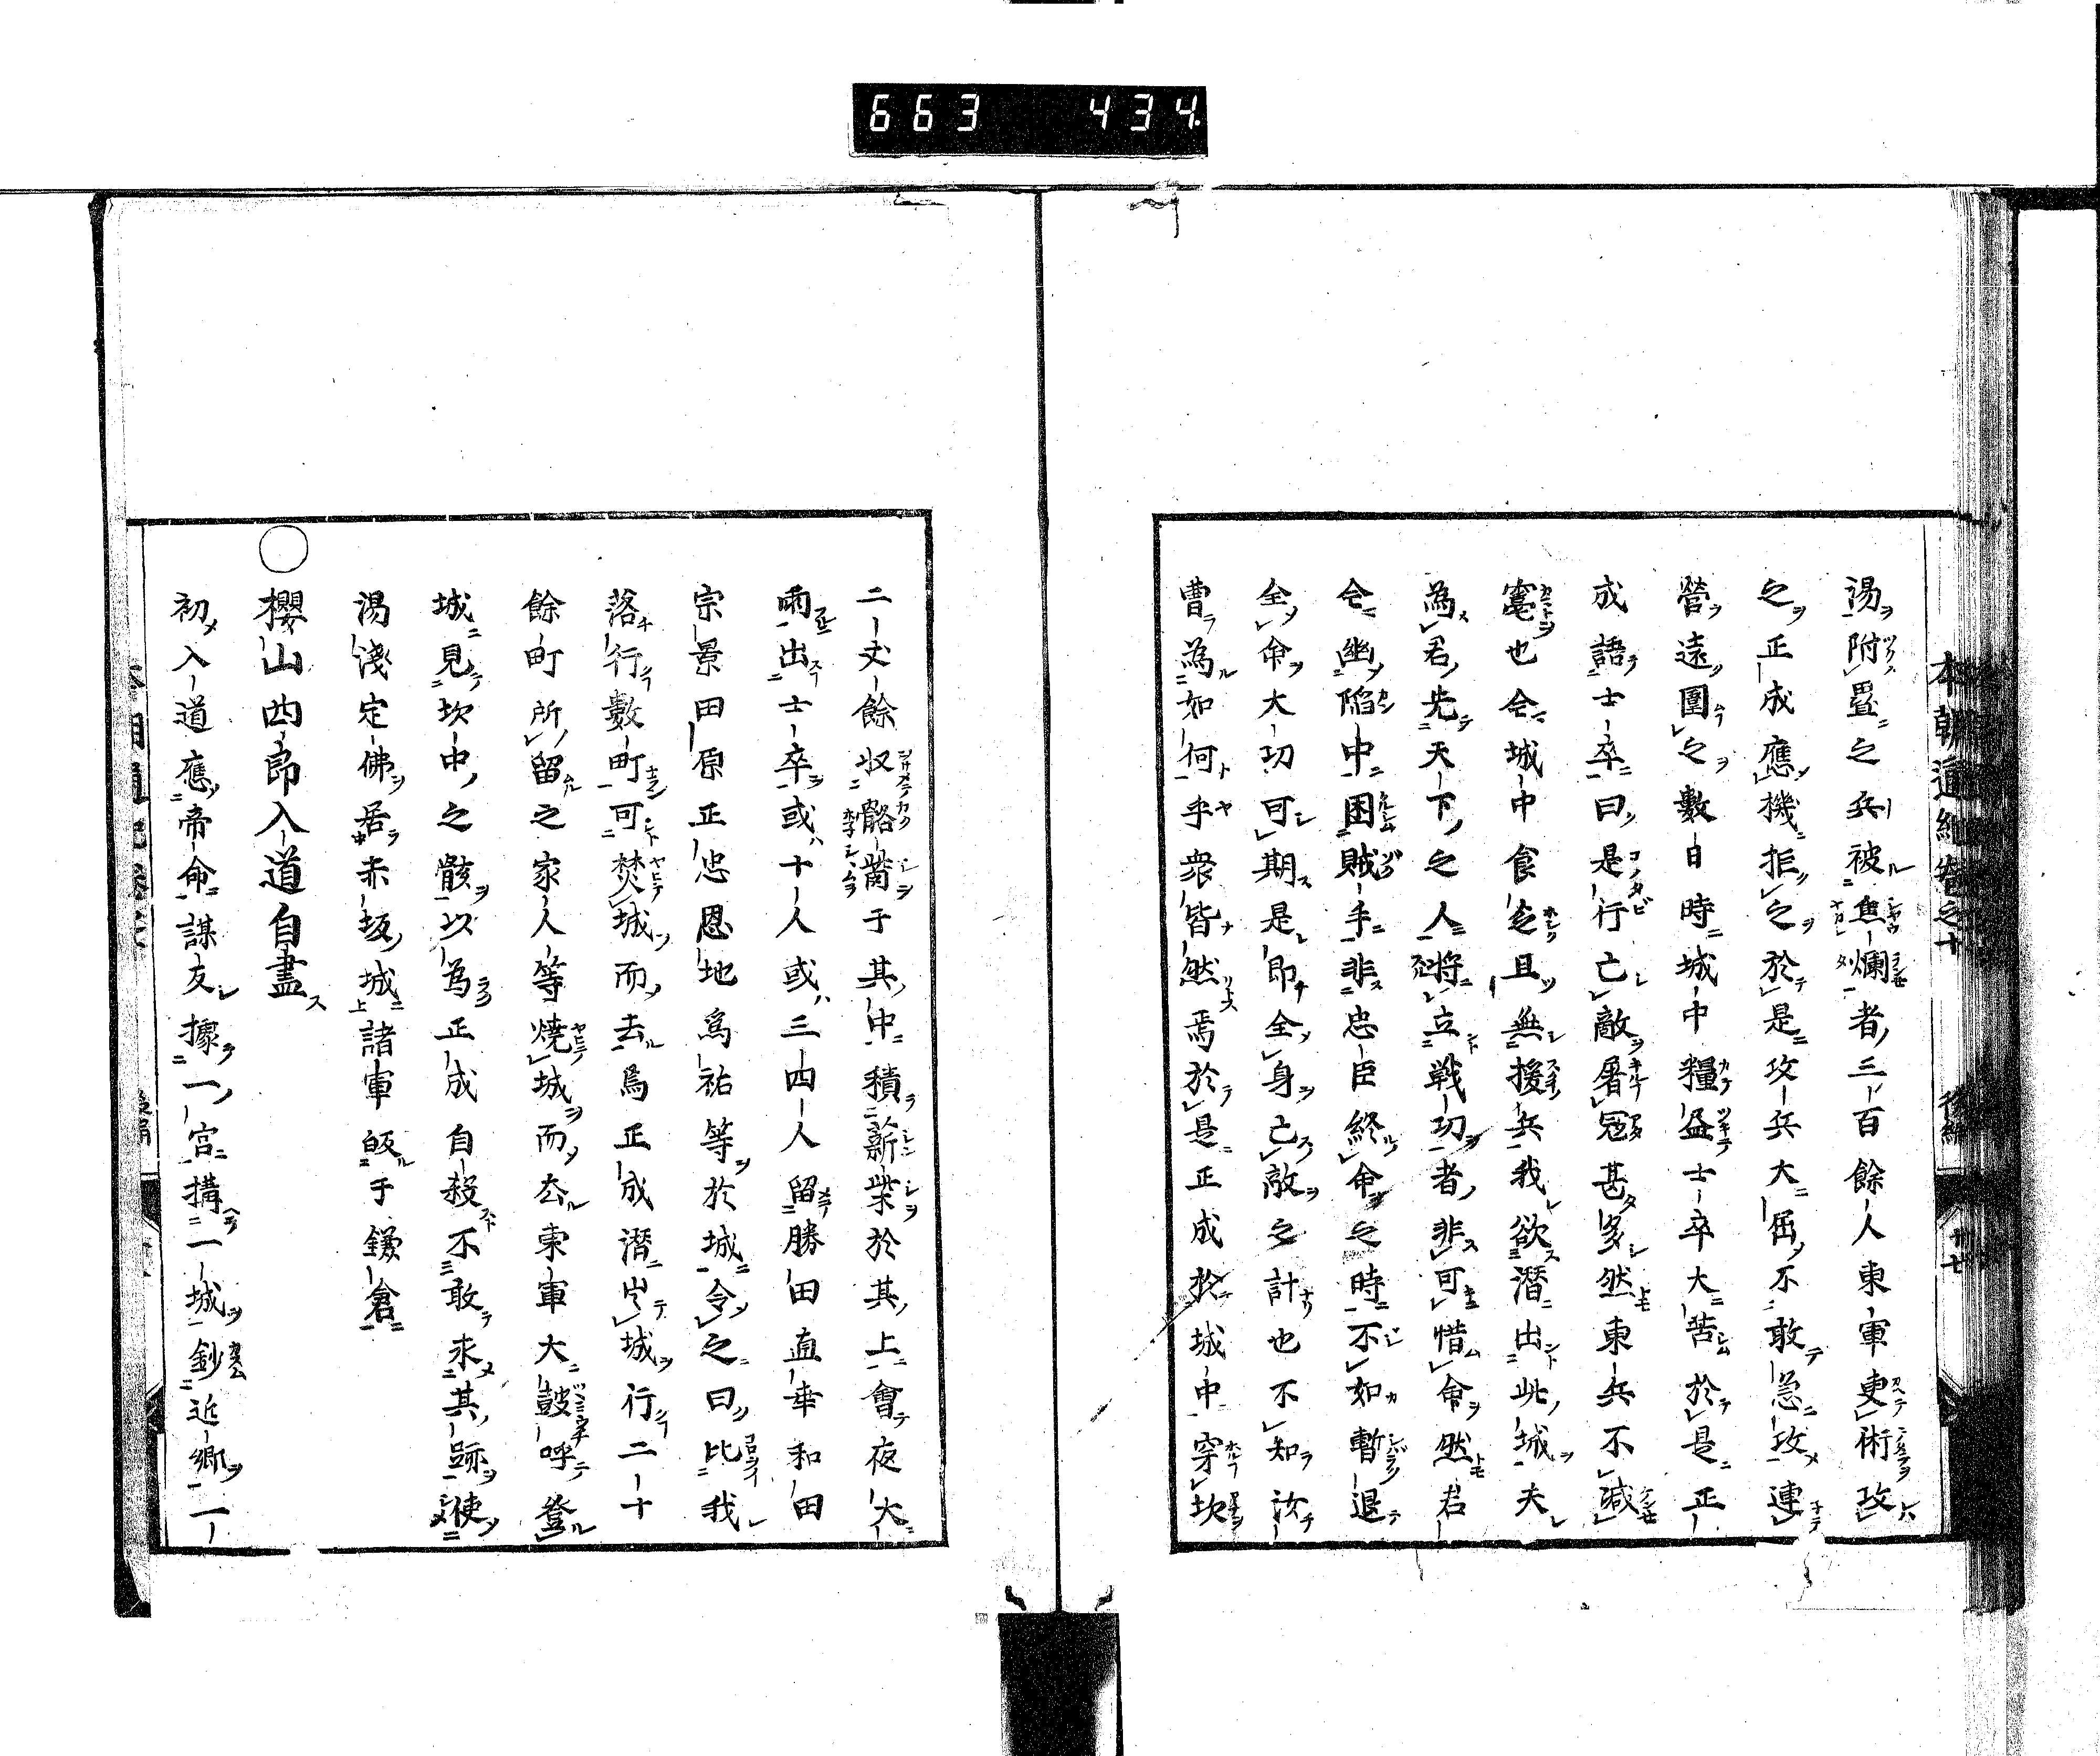 663 434
本朝通紀卷之十 後編 十七
湯附置之兵被焦爛者三百餘人東軍更術攻
之正成應機拒之於是攻兵大屈不敢急攻連
營遠圍之數日時城中糧益士卒大苦於是正
成語士卒曰是行亡敵屠冦甚多然東兵不減
竃也今城中食乏且無援兵我欲潛出此城夫
為君先天下之人將立戰功者非可惜命然君
今幽陷中困賊手非忠臣終命之時不如暫退
全命大功可期是即全身亡敵之計也不知汝
曹為如何乎衆皆然焉於是正成於城中穿坎
二丈餘収骼胔于其中積薪柴於其上會夜大
雨出士卒或十人或三四人留勝田直幸和田
宗景田原正忠恩地為祐等於城令之曰比我
落行數町可焚城而去焉正成潛出城行二十
餘町所留之家人等燒城而去東軍大皷呼登
城見坎中之骸以為正成自殺不敢求其跡使
湯淺定佛居赤坂城諸軍皈于鎌倉
○櫻山四郎入道自盡
初入道應帝命謀友據一宮搆一城鈔近鄉一